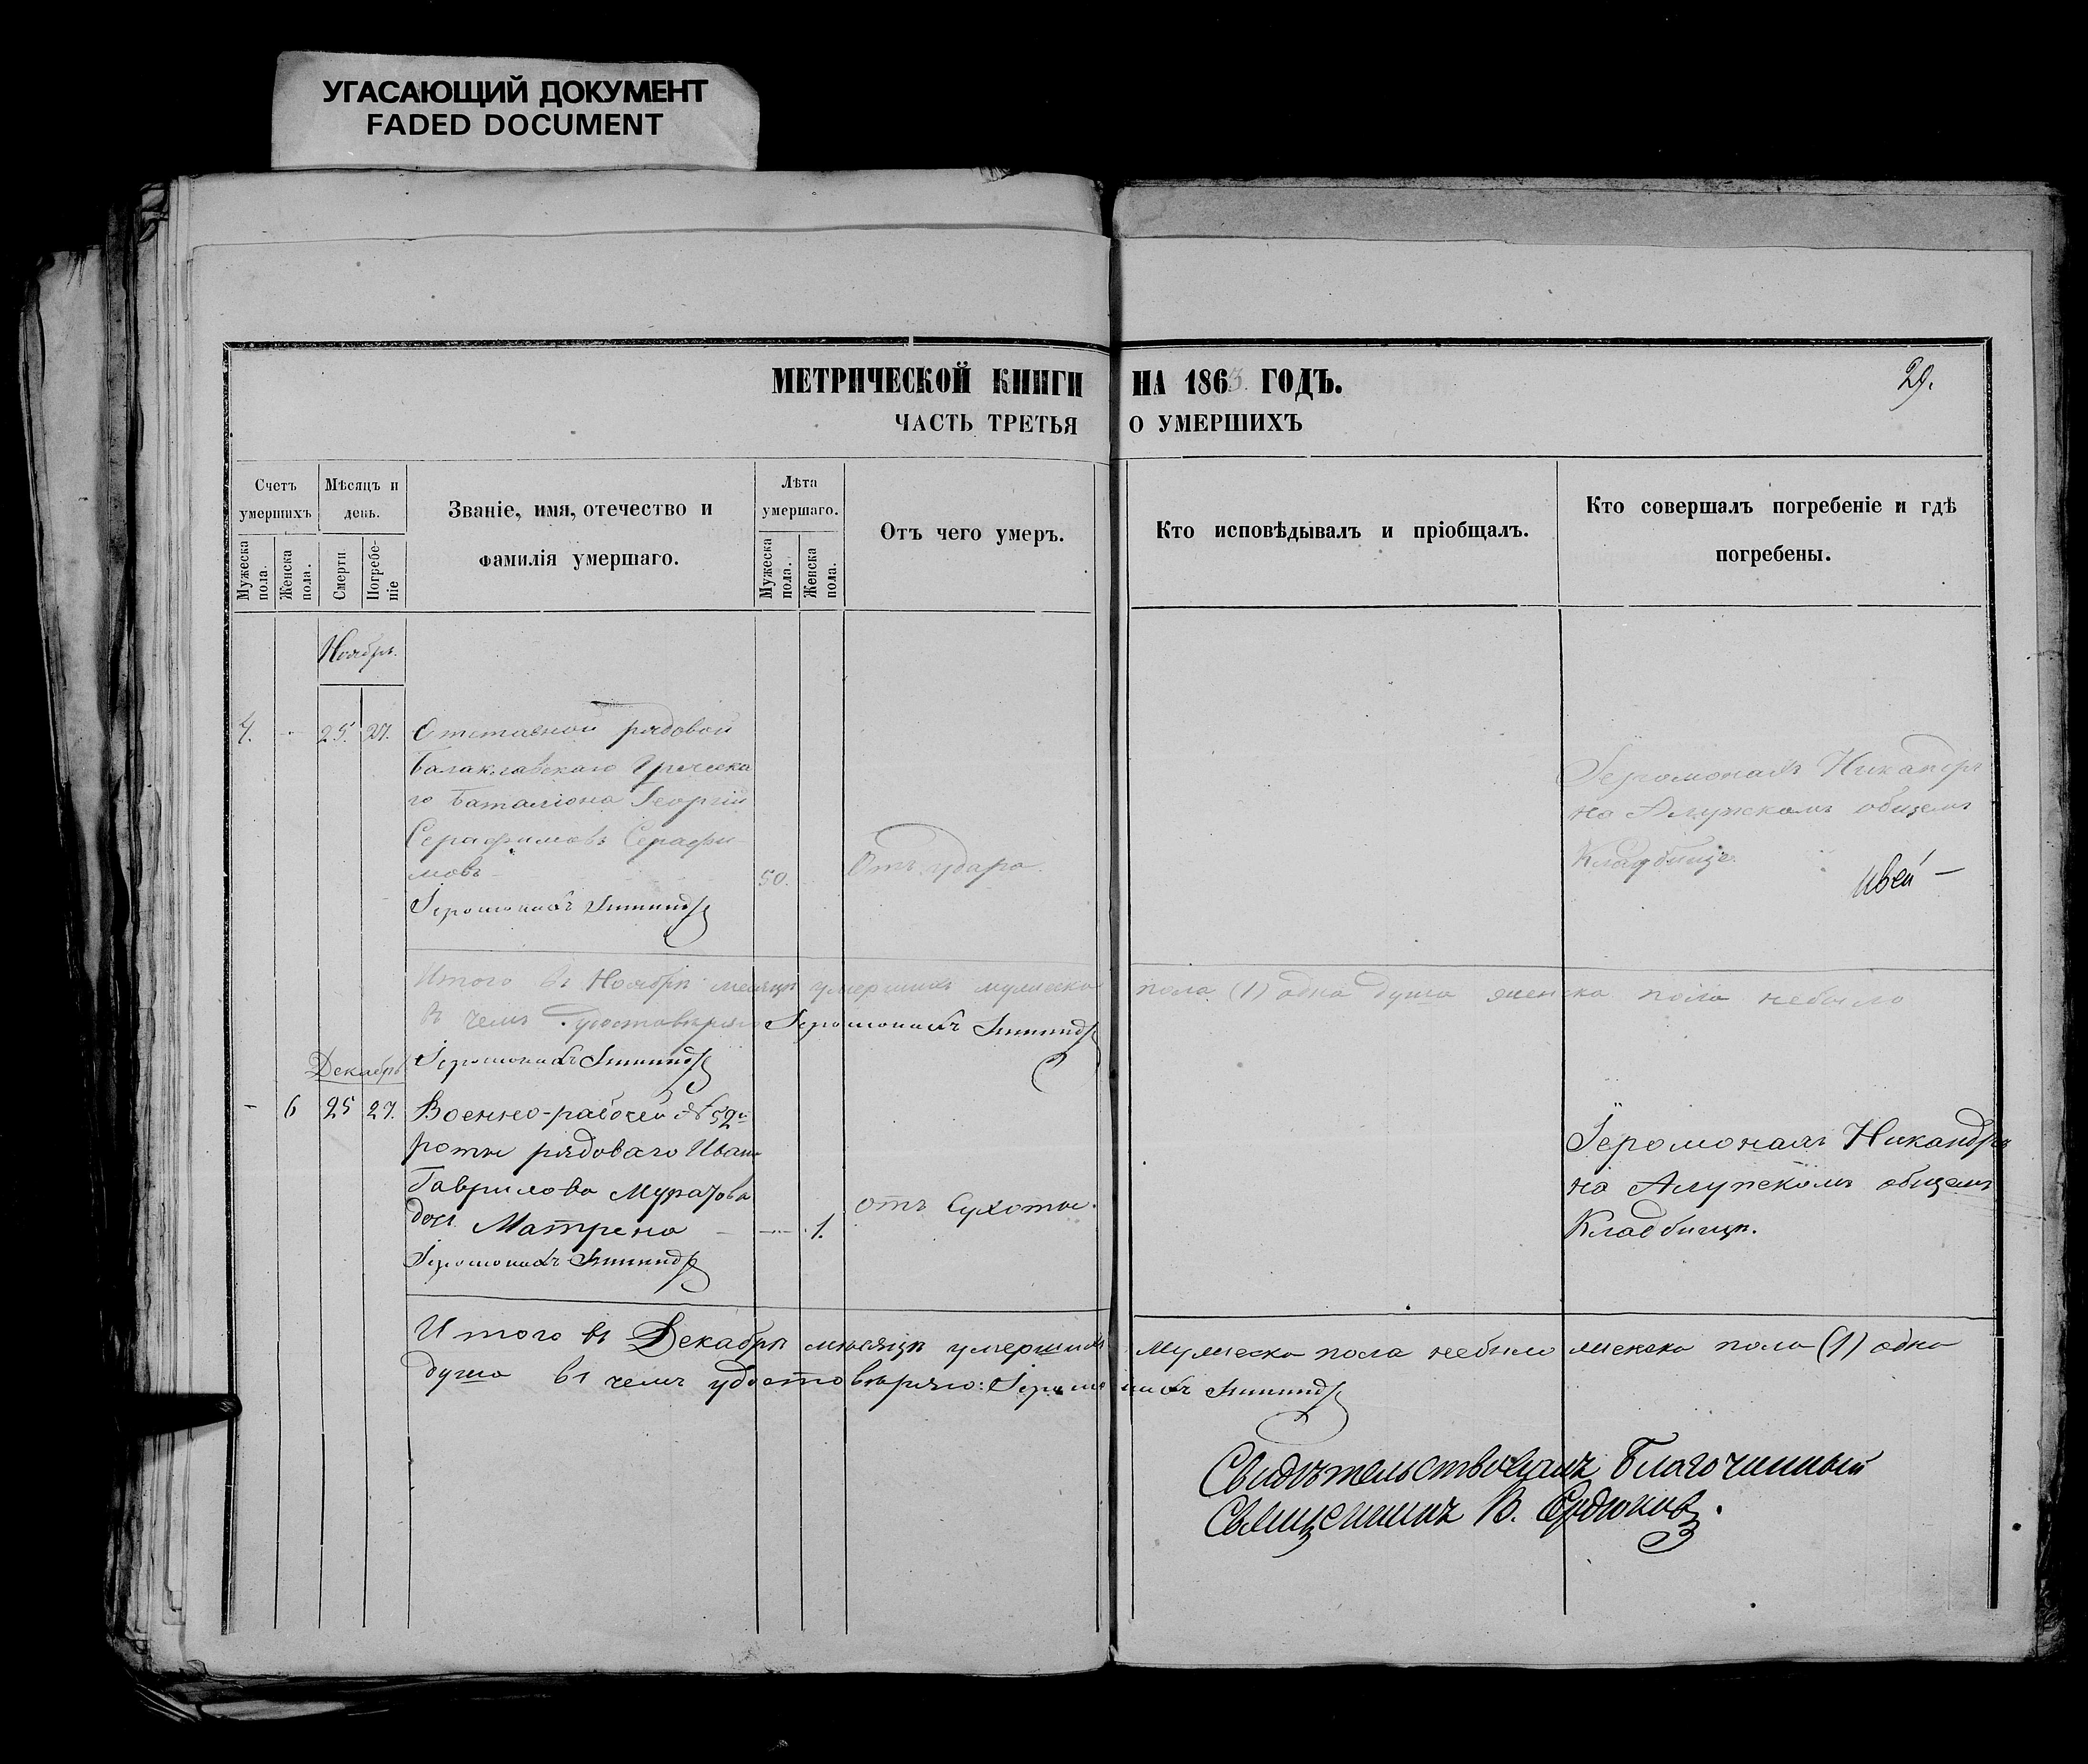 УГАСАЮЩИЙ ДОКУМЕНТ
FADED DOCUMENT
МЕТРИЧЕСКОЙ КНИГИ НА 1863 ГОДЪ.
29.
ЧАСТЬ ТРЕТЬЯ О УМЕРШИХЪ
Счетъ умершихъ
Мужеска пола.
Женска пола.
Мѣсяцъ и день.
Смерти
Погребе-ніе
Званіе, имя, отечество и
фамилія умершаго.
Лѣта умершаго.
Мужеска пола.
Женска пола.
Отъ чего умеръ.
Кто исповѣдывалъ и пріобщалъ.
Кто совершалъ погребеніе и гдѣ
погребены.
Ноябрь.
4. 25. 27. Отставной рядовой
Балаклавскаго Греческа
го Баталіона Георгій
Серафимовъ Серафи
мовъ
50.
Отъ удара.
Іеромонахъ Никандръ
на Алупскомъ общемъ
Кладбище.
Іеромонахъ
Итого въ Ноябрѣ месяцѣ умершихъ мужеска пола (1) одна душа женска пола небыло
в чемъ удостовѣряю Іеромонахъ
Декабрь
Іеромонахъ
- 6 25 27. Военно-рабочей № 52й
роты рядоваго Ивана
Гаврилова Муратова
доч. Матрена
1.
отъ Сухоты.
Іеромонахъ Никандръ
на Алупскомъ общемъ
Кладбищѣ.
Іеромонахъ
Итого въ Декабрѣ мѣсяцѣ умершихъ мужеска пола небыло женска пола (1) одна
душа въ чемъ удостовѣряю: Іеромонахъ
Свидѣтельствовалъ Благочинный
Священникъ В.